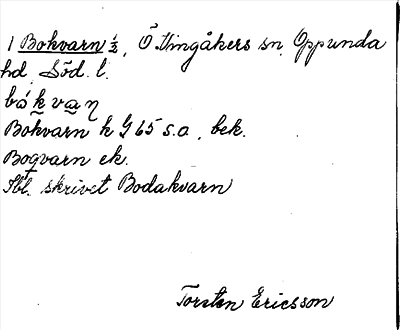 1 Bokvarn ½, Ö Vingåkers sn, Oppunda
hd, Söd. l.
bókvaṇ
Bokvarn h G 65 s.o, bek.
Boqvarn ek.
Jbl. skrivet Bodakvarn
Torsten Ericsson